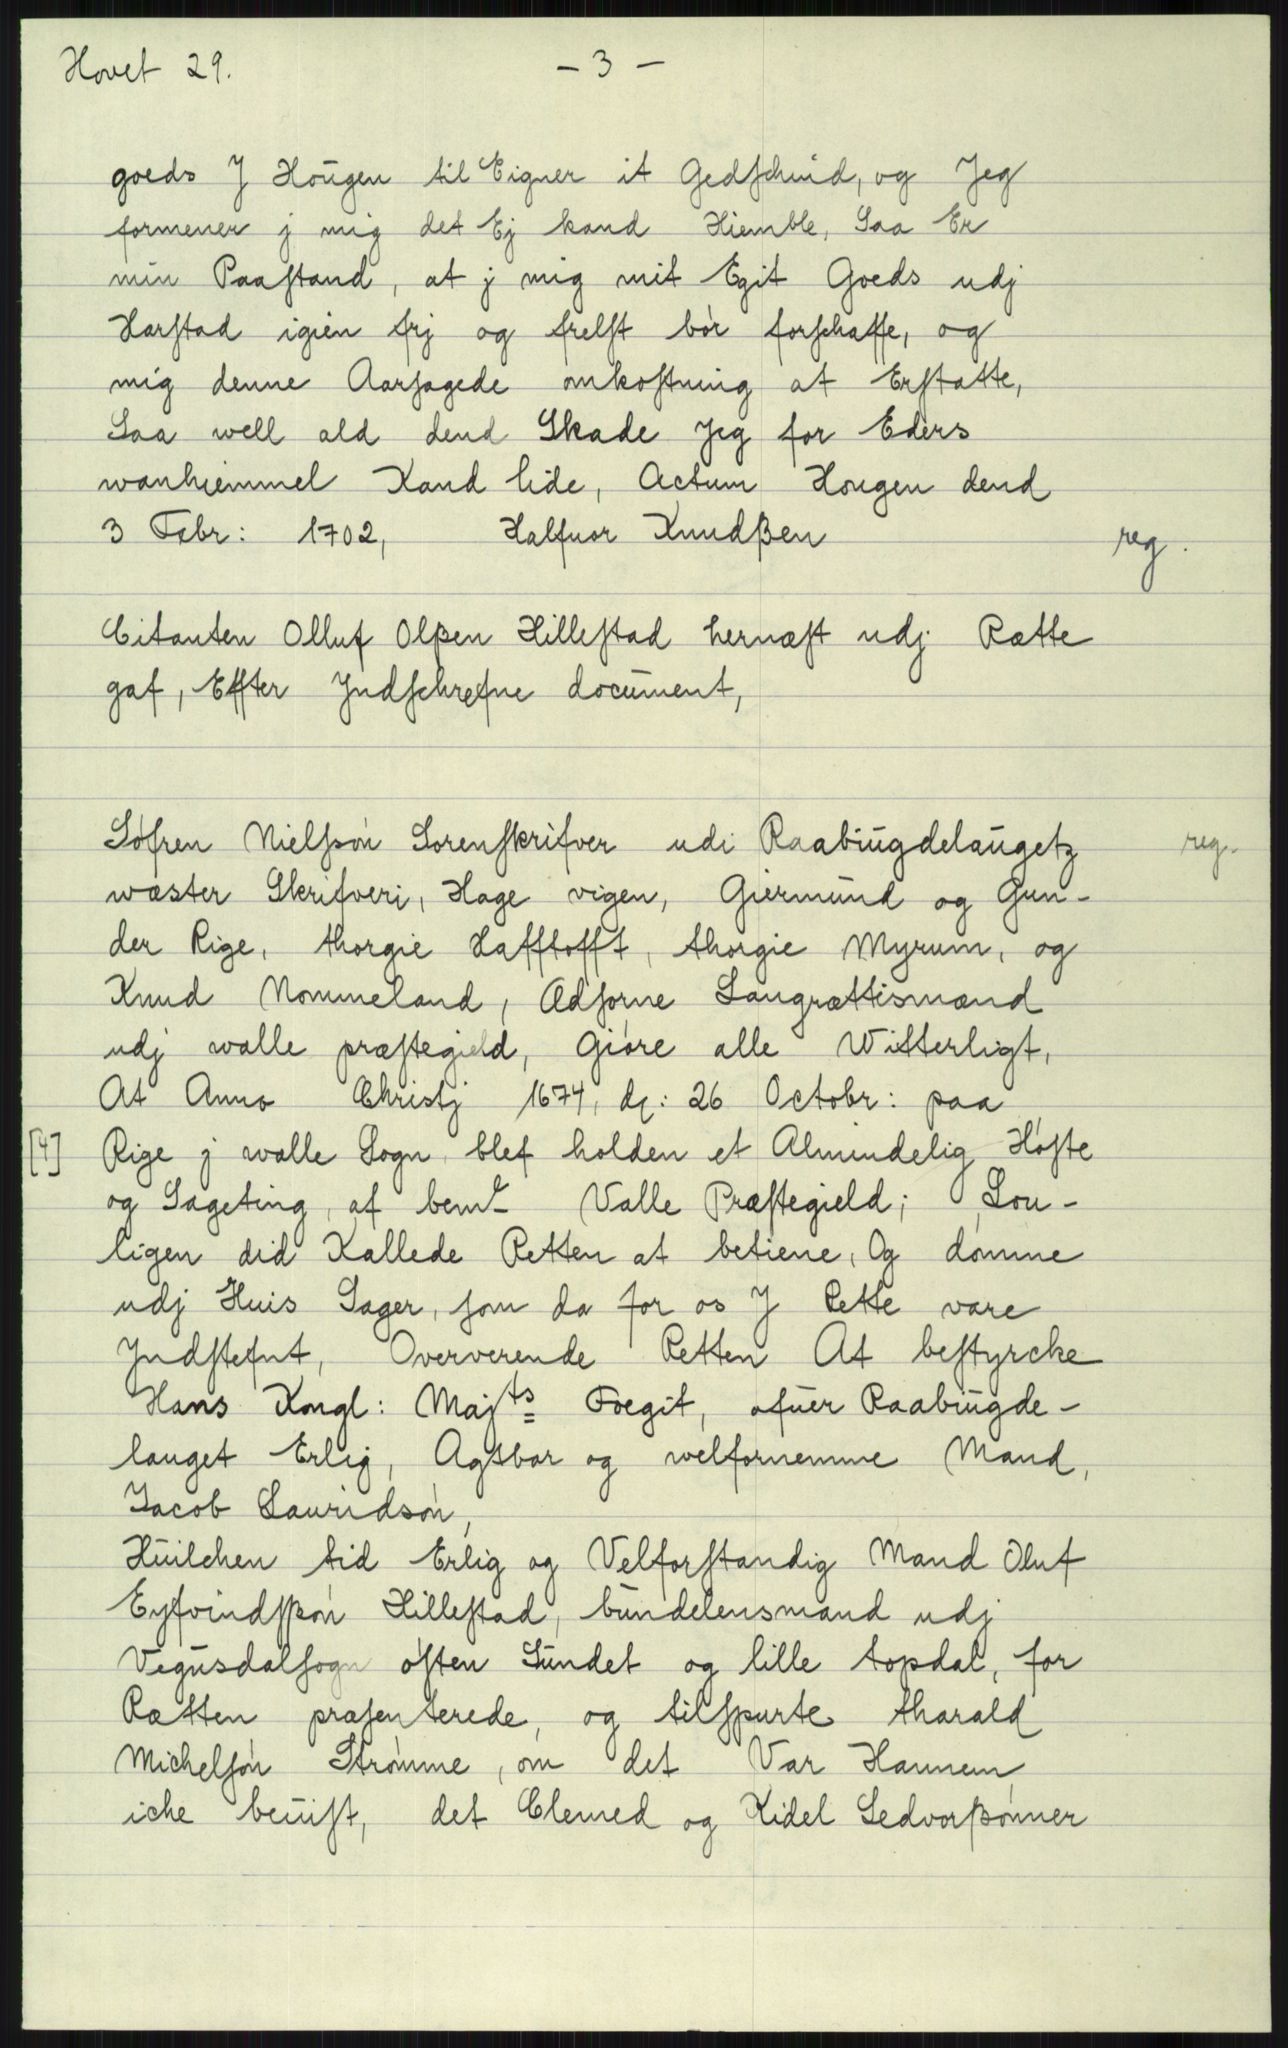 Hovet 29.
- 3 -
goeds J Hougen til Eigner it Gedschuid, og Jeg
formener j mig det Ej kand Hiemble, Saa Er
min Paastand, at j mig mit Egit Goeds udj
Harstad igien frj og frelst bør forschaffe, og
mig denne Aarsagede omkostning at Erstatte,
Saa well ald dend Skade Jeg for Eders
wanhiemmel Kand lide, Actum Hougen dend
3 Febr: 1702, Halfuor Knudßen
reg.
Citanten Olluf Olßen Hillestad hernæst udj Rætte
gaf, Effter Jndschrefne document,
Søfren Nielsøn Sorenskrifver udi Raabiugdelaugetz
reg.
wæster Skrifveri, Hage vigen, Giermund og Gun-
der Rige, thorgie Hafftofft, thorgie Myrum, og
Knud Nommeland, Ædsorne Laugrættismænd
udj walle præstegield, Giøre alle Witterligt,
At Anno Christj 1674, dę: 26 Octobr: paa
[4]
Rige j walle Sogn blef holden et Almindelig Høste
og Sageting, af bemte Valle Præstegield; Lou-
ligen did Kallede Retten at betiene, Og dømme
udj Huis Sager, som da for os J Rette vare
Jndstefnt, Oververende Retten At bestyrcke
Hans Kongl: Majts Foegit, ofuer Raabiugde-
lauget Erlig, Agtbar og welfornemme Mand,
Jacob Lauridsøn,
Huilchen tid Erlig og Velforstandig Mand Oluf
Eyfvindssøn Hillestad, bundelensmand udj
Vegusdalsogn østen Sundet og lille topdal, for
Rætten præsenterede, og tilspurte tharald
Michelsøn Strømme, om det Var Hannem
iche beuist, det Clemed og Kidel Sedvorßønner